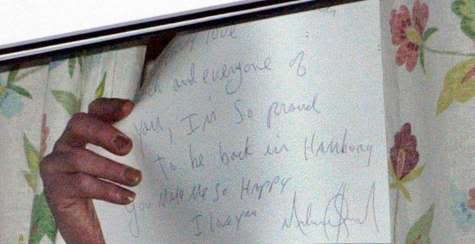 love
and everyone of
you, I'm So proud
to be back in Hamburg
You Make Me So Happy
I love you